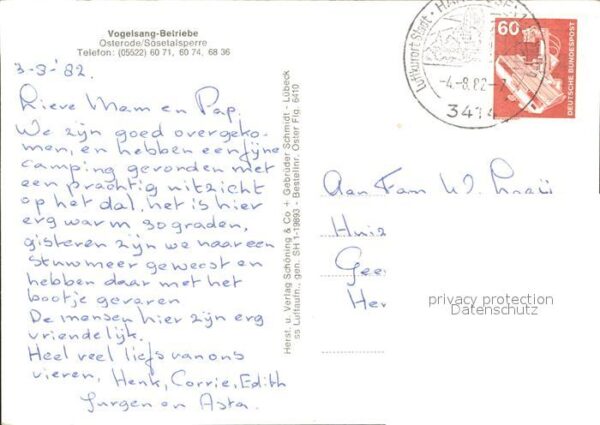 Vogelsang-Betriebe
Osterode/Sösetalsperre
Telefon: (05522) 60 71, 60 74, 68 36
3-8-'82.
Lieve Mam en Pap,
We zijn goed overgeko-
men, en hebben een fijne
camping gevonden met
een prachtig uitzicht
op het dal, het is hier
erg warm, 30 graden,
gisteren zijn we naar een
stuwmeer geweest en
hebben daar met het
bootje gevaren
De mensen hier zijn erg
vriendelijk.
Heel veel liefs van ons
vieren, Henk, Corrie, Edith
Jurgen en Asta.
Herst. u. Verlag Schöning & Co + Gebrüder Schmidt - Lübeck
ss Luftaufn., gen. SH 1-19893 - Bestellnr. Oster Flg. 6410
Luftkurort Stadt
-4.-8.82-
3414
60
DEUTSCHE BUNDESPOST
Aan Fam W.
Huiz
Gee
Her
privacy protection
Datenschutz